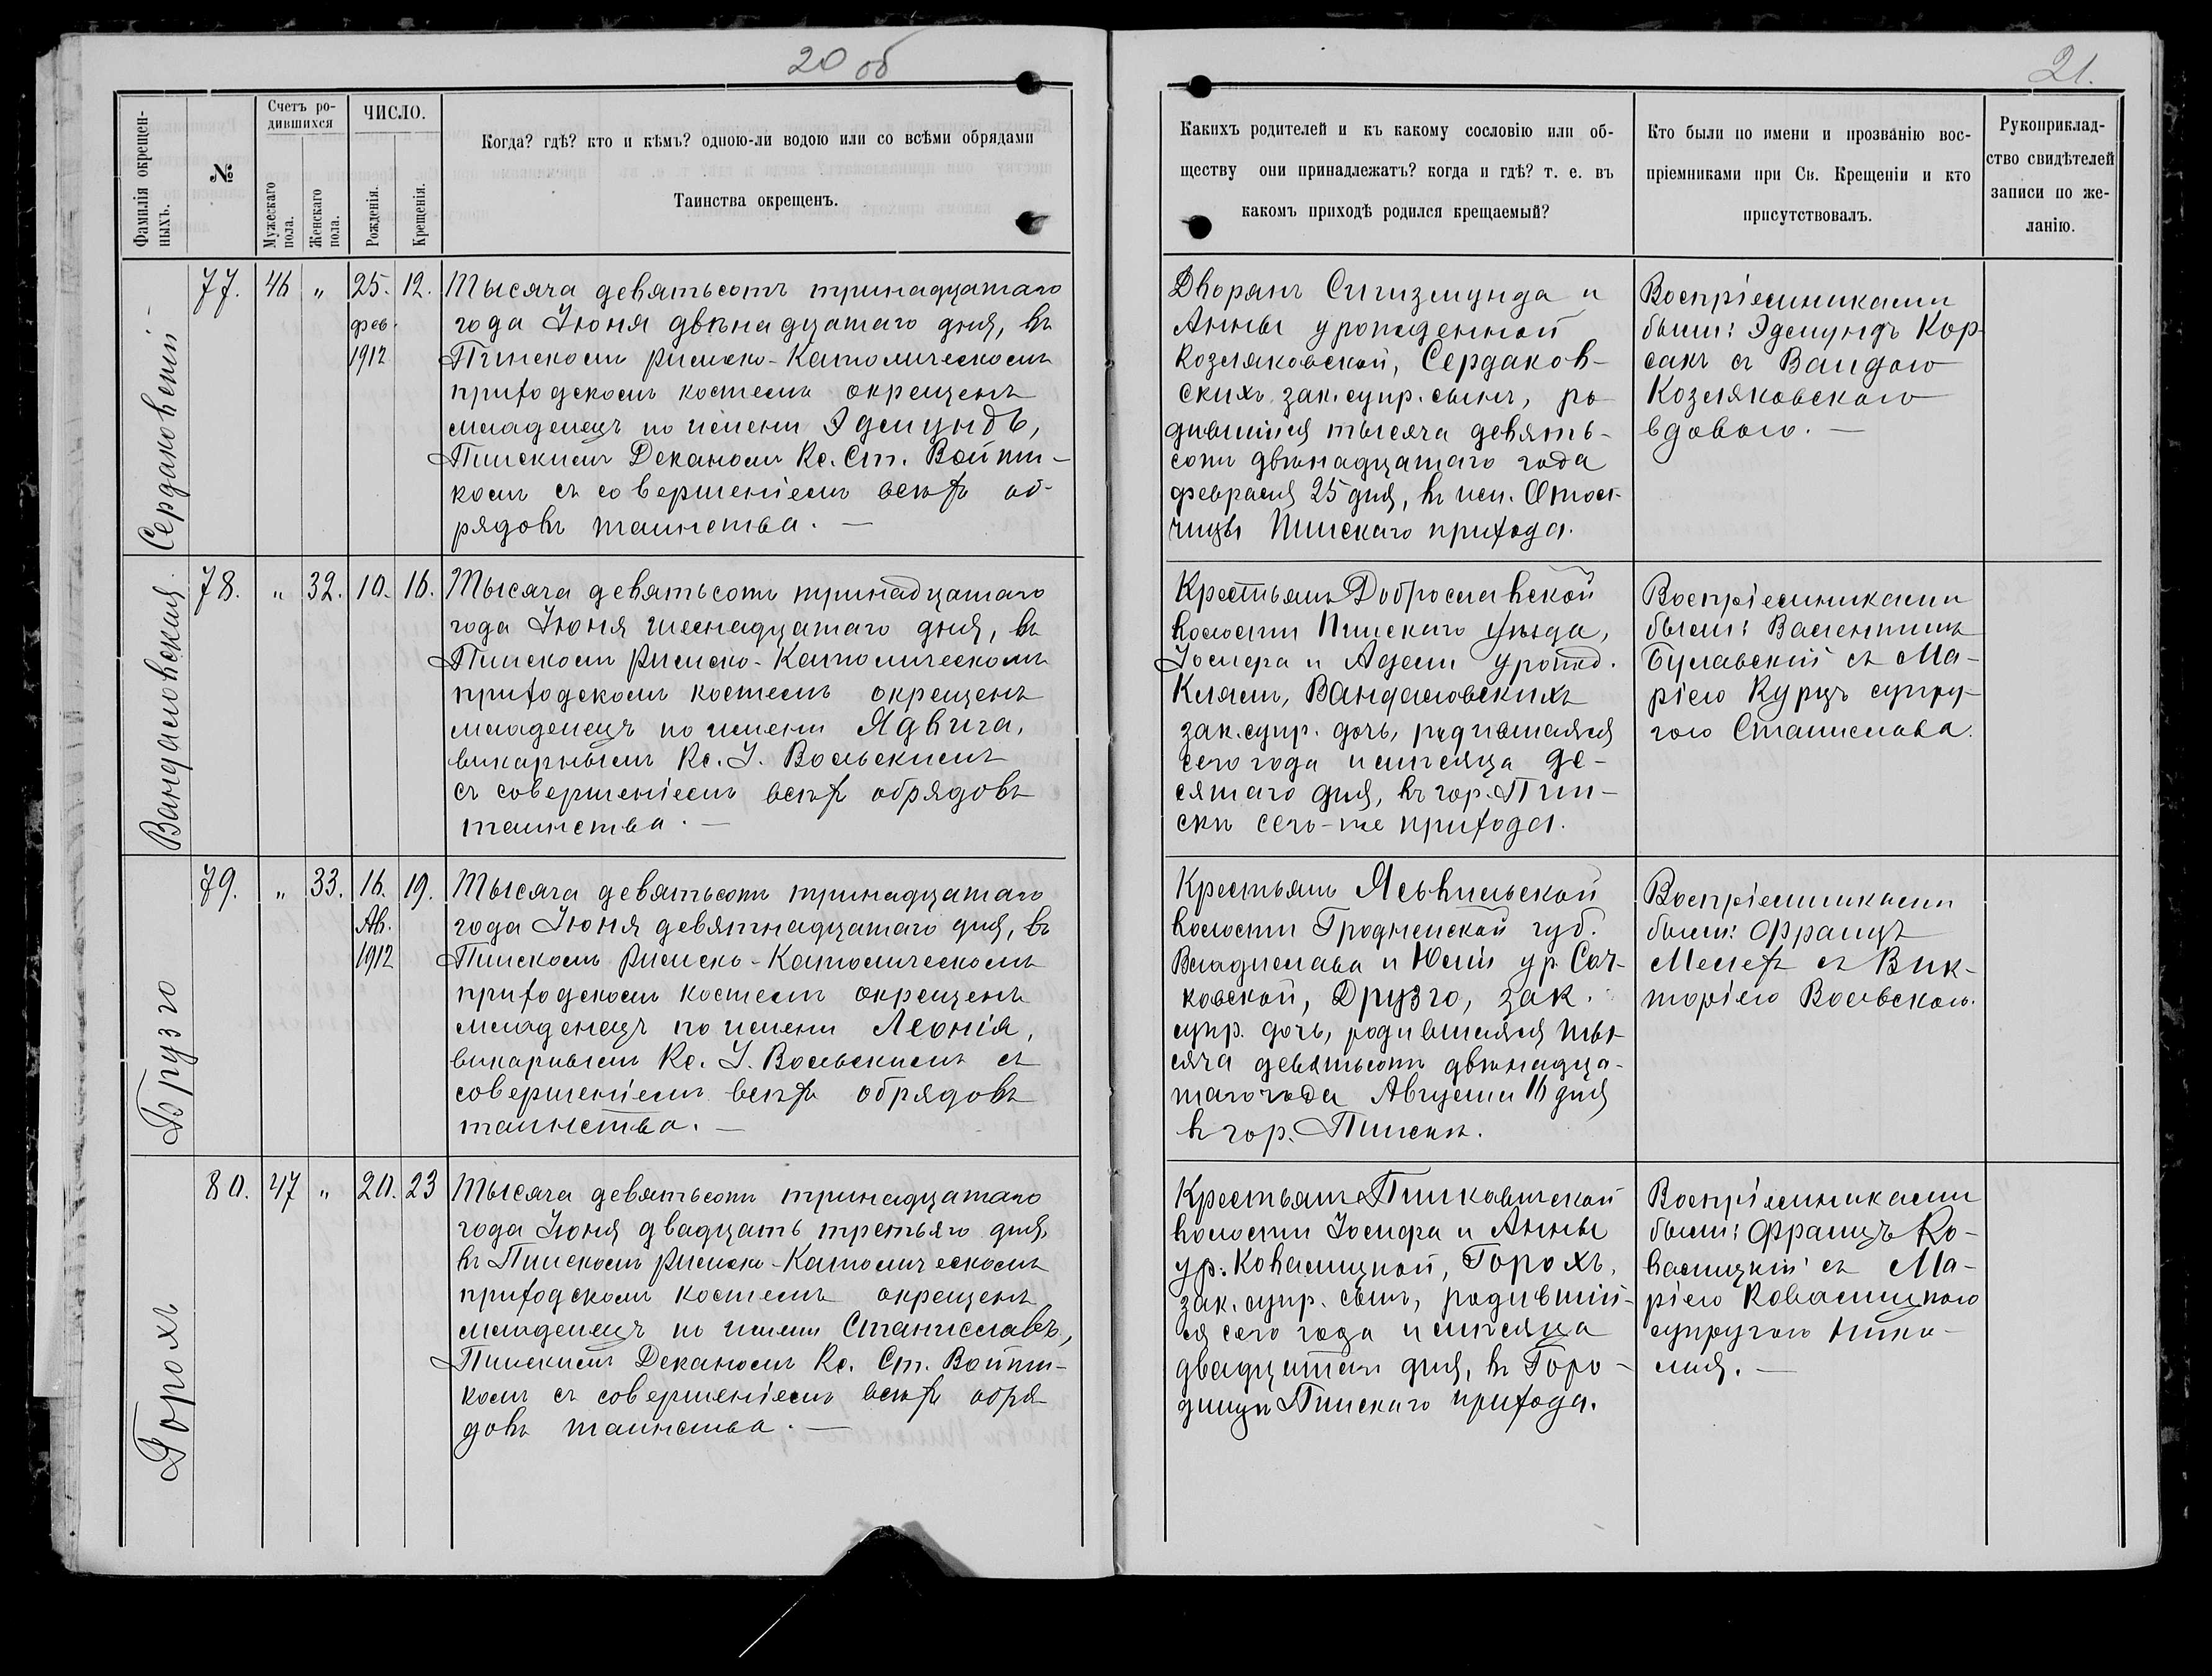 20 об
21.
Фамилія окрещенныхъ.
№
Счетъ родившихся
Мужескаго пола.
Женскаго пола.
ЧИСЛО.
Рожденія.
Крещенія.
Когда? гдѣ? кто и кѣмъ? одною-ли водою или со всѣми обрядами
Таинства окрещенъ.
Какихъ родителей и къ какому сословію или об-
ществу они принадлежатъ? когда и гдѣ? т. е. въ
какомъ приходѣ родился крещаемый?
Кто были по имени и прозванію вос-
пріемниками при Св. Крещеніи и кто
присутствовалъ.
Рукоприклад-
ство свидѣтелей
записи по же-
ланію.
Сердаковскій
77. 46 " 25. 12.
фев.
1912
Тысяча девятьсотъ тринадцатаго
года Іюня двѣнадцатаго дня, въ
Пинскомъ Римско-Католическомъ
приходскомъ костелѣ окрещенъ
младенецъ по имени Эдмундъ,
Пинскимъ Деканомъ Кс. Ст. Войти-
комъ съ совершеніемъ всѣхъ об-
рядовъ таинства. —
Дворянъ Сигизмунда и
Анны урожденной
Козляковской, Сердаков-
скихъ зак. супр. сынъ, ро
дившійся тысяча девять-
сотъ двѣнадцатаго года
февраля 25 дня, въ им.
чицы Пинскаго прихода.
Воспріемниками
были: Эдмундъ Кор-
сакъ съ Вандою
Козляковскою
вдовою. —
Вандаловская.
78. " 32. 10. 16.
Тысяча девятьсотъ тринадцатаго
года Іюня шеснадцатаго дня, въ
Пинскомъ Римско-Католическомъ
приходскомъ костелѣ окрещенъ
младенецъ по имени Ядвига,
викарнымъ Кс. І. Вольскимъ
съ совершеніемъ всѣхъ обрядовъ
таинства. —
Крестьянъ Доброславской
волости Пинскаго уѣзда,
Іосифа и Адели урожд.
Клямъ, Вандаловскихъ
зак. супр. дочь, родившаяся
сего года и мѣсяца де-
сятаго дня, въ гор. Пин-
скѣ сего-же прихода.
Воспріемниками
были: Валентинъ
Булавскій съ Ма-
ріею Курцъ супру-
гою Станислава.
Друзго
79. " 33. 16. 19.
Ав.
1912
Тысяча девятьсотъ тринадцатаго
года Іюня девятнадцатаго дня, въ
Пинскомъ Римско-Католическомъ
приходскомъ костелѣ окрещенъ
младенецъ по имени Леонія,
викарнымъ Кс. І. Вольскимъ съ
совершеніемъ всѣхъ обрядовъ
таинства. —
Крестьянъ
волости Гродненской губ.
Владислава и Юліи ур. Сач-
ковской, Друзго, зак.
супр. дочь, родившаяся ты-
сяча девятьсотъ двѣнадца-
таго года Августа 16 дня
въ гор. Пинскѣ.
Воспріемниками
были: Францъ
Мелехъ съ Вик-
торіею Вольскою.
Горохъ
80. 47 " 20. 23
Тысяча девятьсотъ тринадцатаго
года Іюня двадцать третьяго дня,
въ Пинскомъ Римско-Католическомъ
приходскомъ костелѣ окрещенъ
младенецъ по имени Станиславъ,
Пинскимъ Деканомъ Кс. Ст. Войти-
комъ съ совершеніемъ всѣхъ обря-
довъ таинства. —
Крестьянъ Пинковичской
волости Іосифа и Анны
ур. Ковалицкой, Горохъ,
зак. супр. сынъ, родившій-
ся сего года и мѣсяца
двадцатаго дня, въ Горо-
дищѣ Пинскаго прихода.
Воспріемниками
были: Францъ Ко-
валицкій съ Ма-
ріею Ковалицкою
супругою Нико-
лая. —